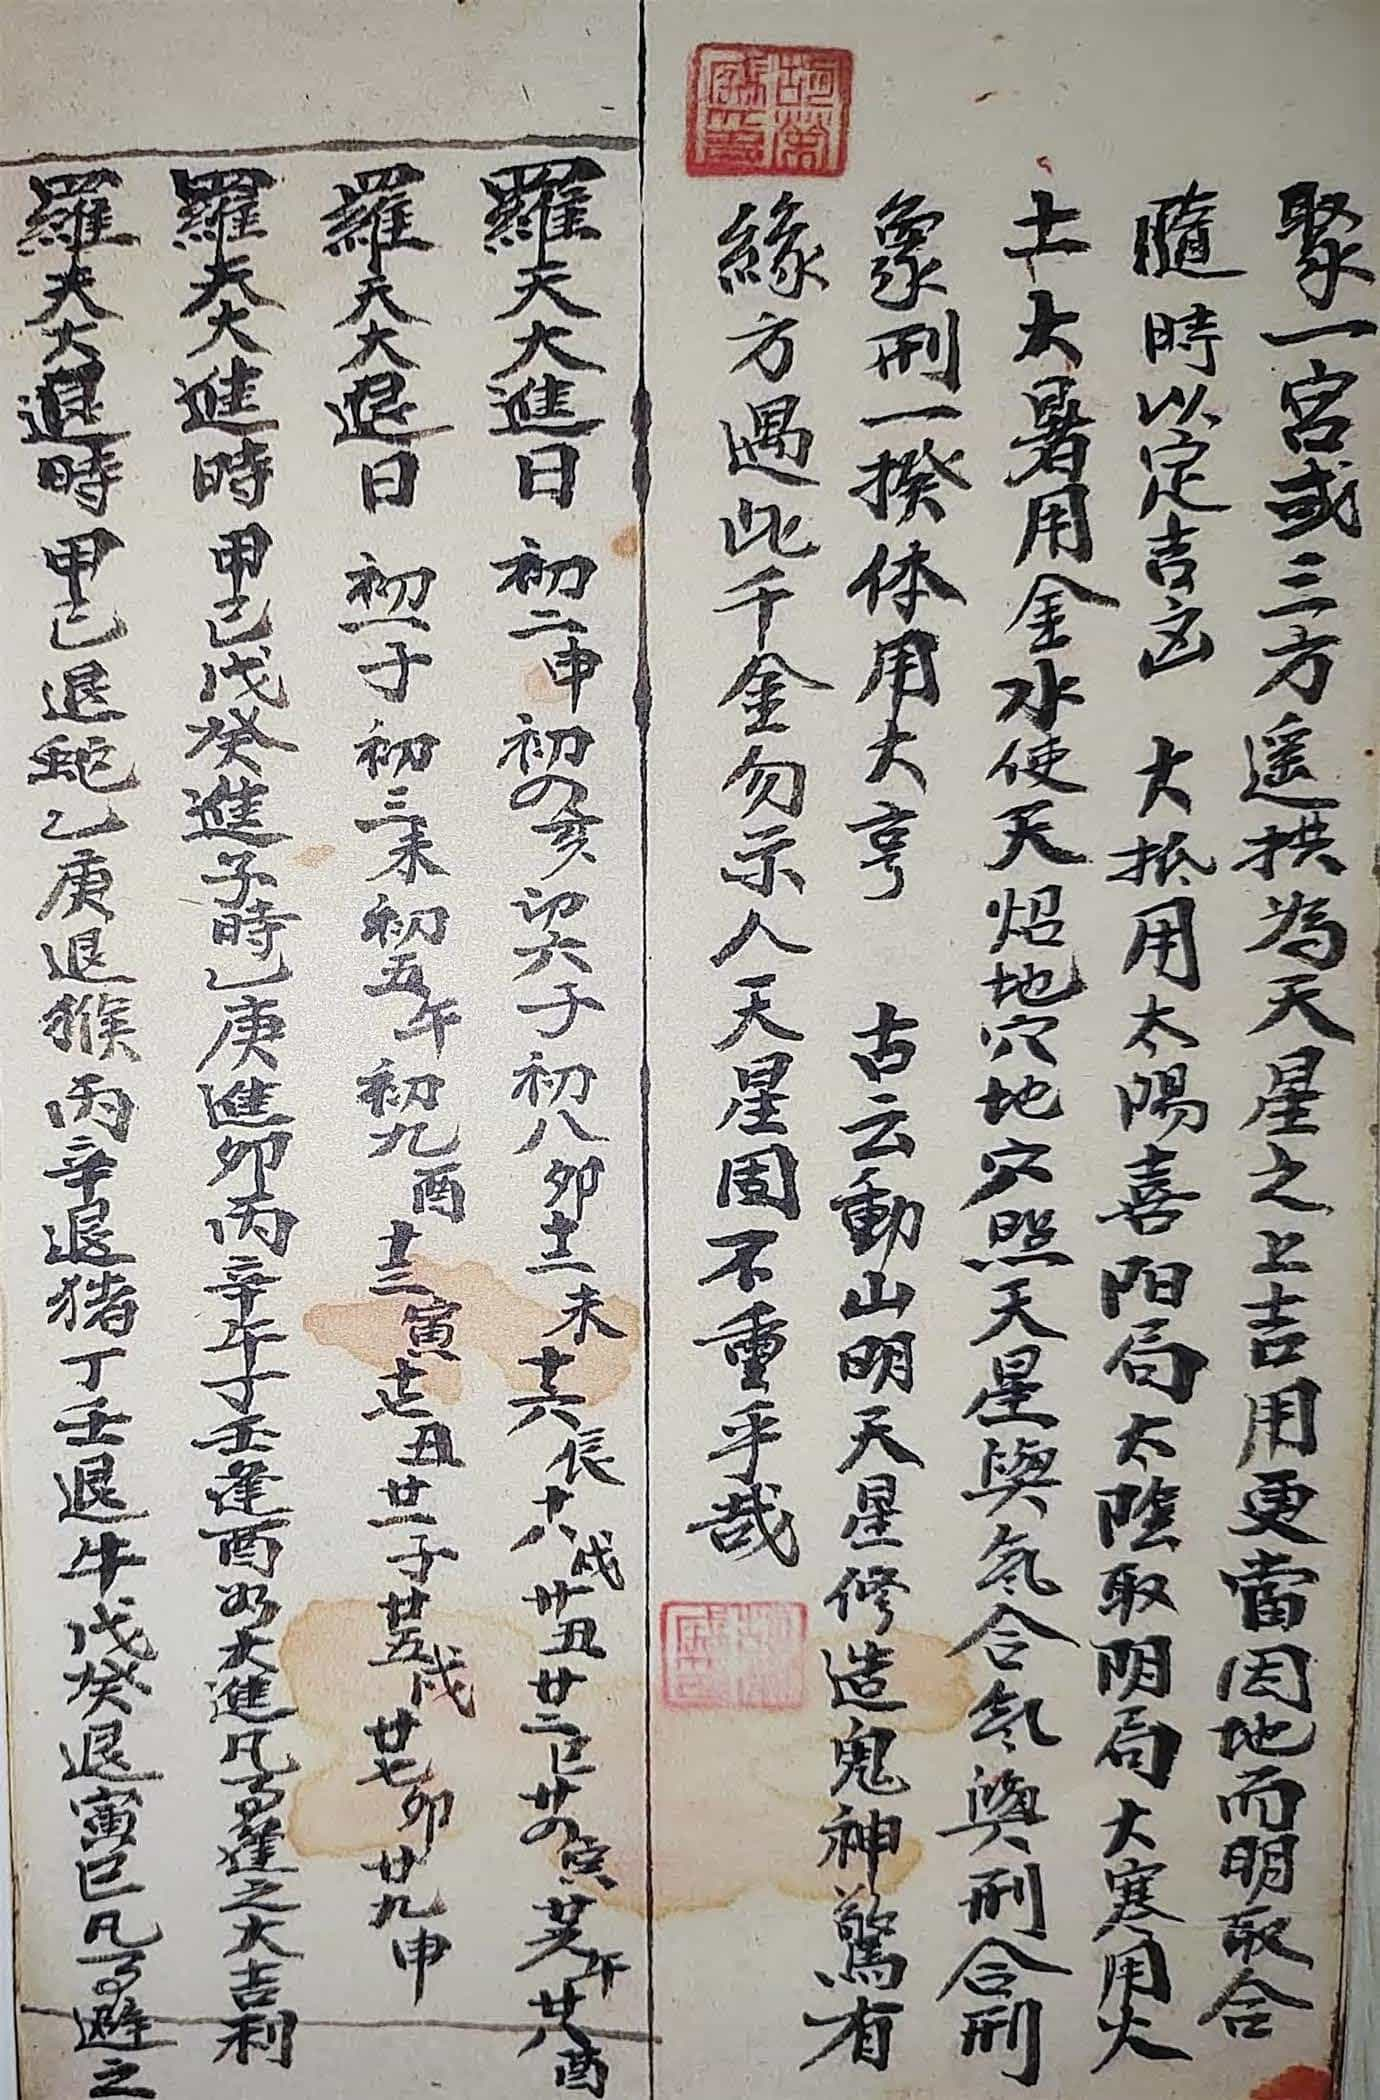 聚一宮或三方遥拱為天星之上吉用更當因地而明取合
隨時以定吉凶 大抵用太陽喜阳局太陰取阴局大寒用火
土大暑用金水使天炤地穴地穴照天星與氣合氣與刑合刑
象刑一揆体用大亨 古云動山明天星修造鬼神驚有
緣方遇此千金勿示人天星固不重乎哉
羅天大進日 初二申初四亥初六子初八卯十二未十六辰十八戌廿丑廿二巳廿四寅廿六午廿八酉
羅天大退日 初一子初三未初五午初九酉十三寅十七丑廿一子廿五戌廿七卯廿九申
羅天大進時 甲己戊癸進子時乙庚進卯丙辛午丁壬逢酉為大進凡事進之大吉利
羅天大退時 甲己退蛇乙庚退猴丙辛退猪丁壬退牛戊癸退寅巳凡事避之